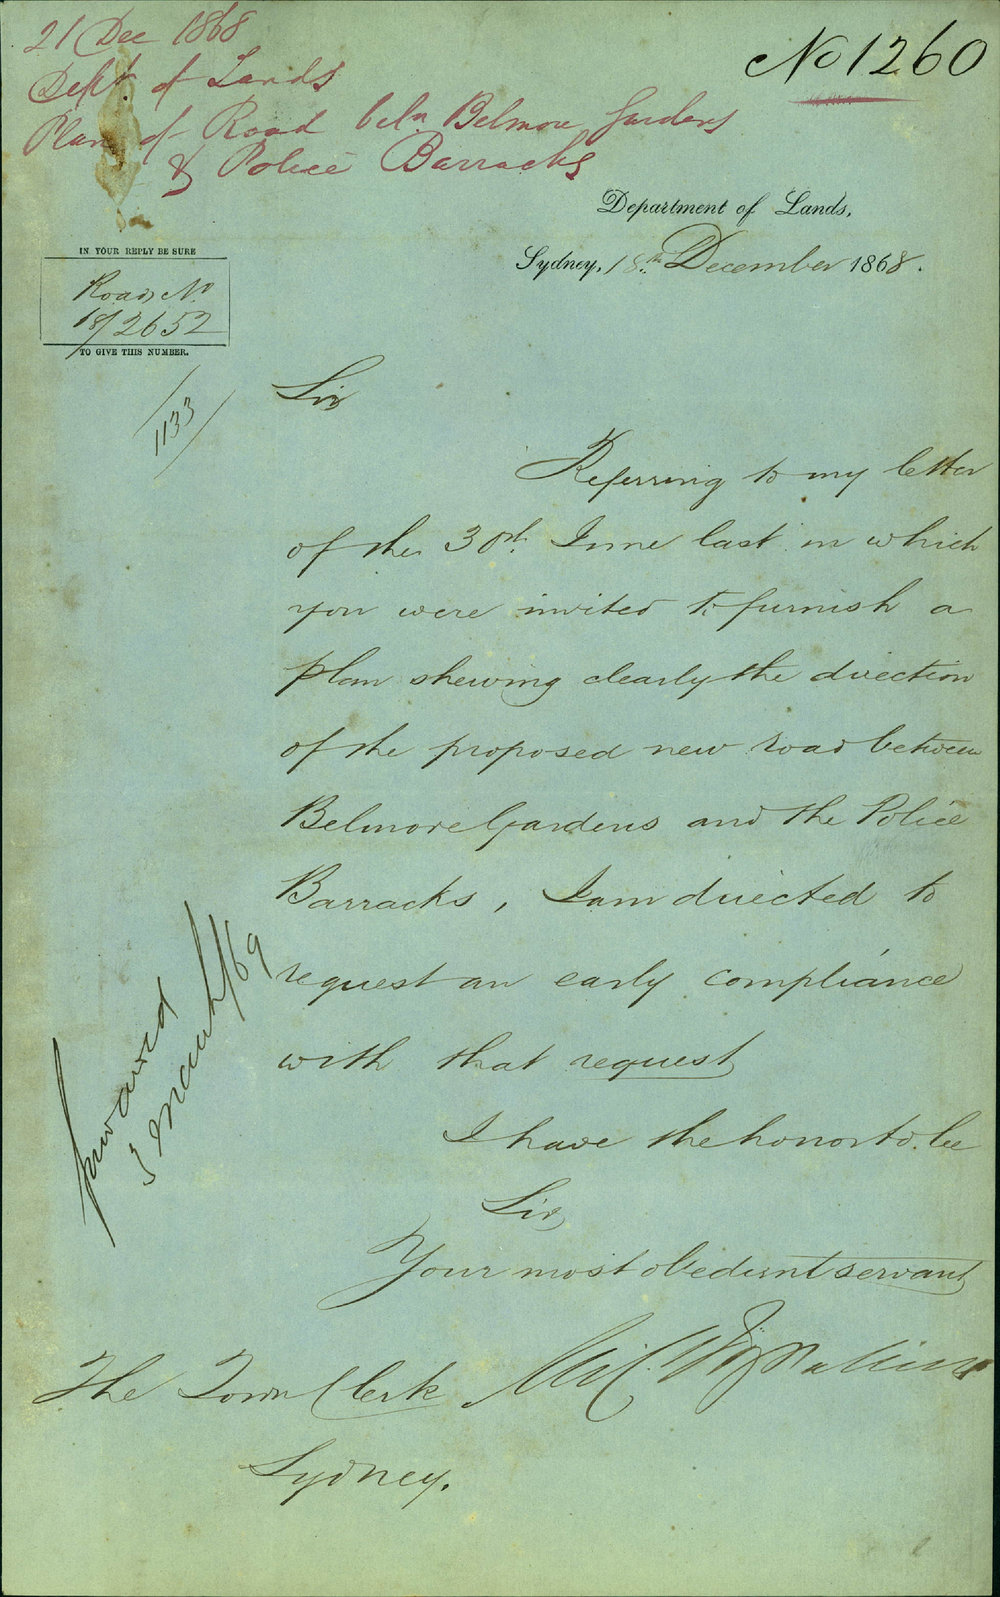 21 Dec 1868
Dept. of Lands
Plan of Road betn Belmore Gardens
& Police Barracks
No 1260
Department of Lands,
Sydney, 18th December 1868.
IN YOUR REPLY BE SURE
Roads No.
68/2652
TO GIVE THIS NUMBER.
1133
Sir
Referring to my letter
of the 30th. June last in which
you were invited to furnish a
plan shewing clearly the direction
of the proposed new road between
Belmore Gardens and the Police
Barracks, I am directed to
request an early compliance
with that request
forwarded
3 March/69
I have the honor to be
Sir,
Your most obedient servant
The Town Clerk
Sydney.